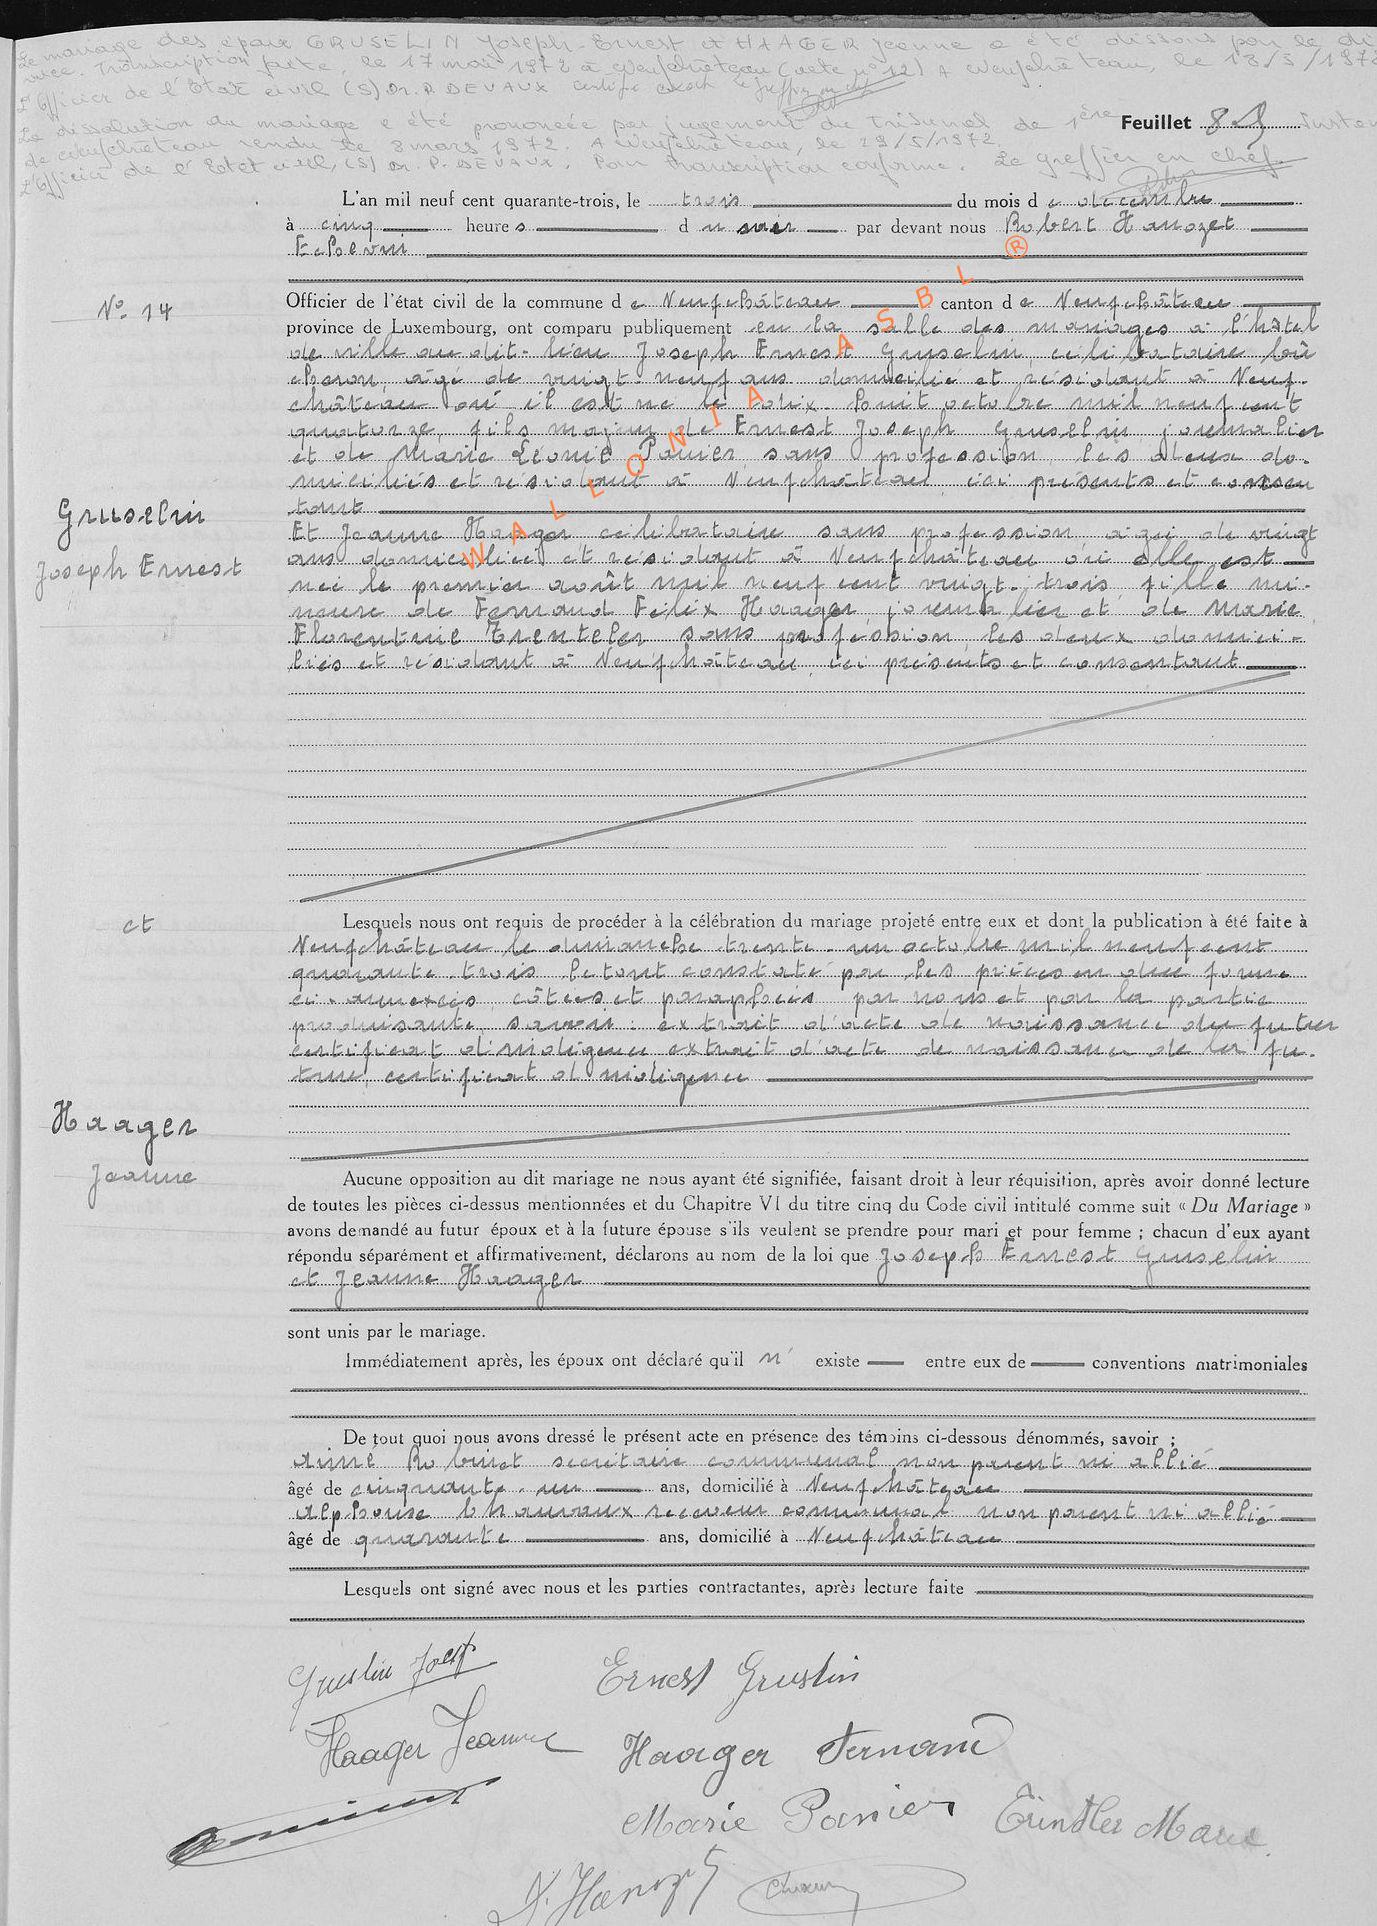 Le mariage des époux GRUSELIN Joseph-Ernest et HAAGER Jeanne a été dissous par le di
vorce. Transcription faite, le 17 mai 1972 à Neufchâteau (acte n° 12) A Neufchâteau, le 18/5/1972
L'Officier de l'Etat civil (S) Dr. P. DEVAUX Certifié exact le greffier en chef
La dissolution du mariage a été prononcée par jugement du Tribunal de 1ère Instan
Feuillet 89
de Neufchâteau rendu le 8 mars 1972 A Neufchâteau, le 29/5/1972
L'Officier de l'Etat civil, (S) Dr. P. DEVAUX. Pour transcription conforme. Le greffier en chef.
L'an mil neuf cent quarante-trois, le trois du mois de décembre
à cinq heures du soir par devant nous Robert Hanozet
Echevin
N° 14
Officier de l'état civil de la commune de Neufchâteau canton de Neufchâteau
province de Luxembourg, ont comparu publiquement en la salle des mariages à l'hôtel
de ville au dit-lieu Joseph Ernest Gruselin, célibataire bû
cheron, âgé de vingt-neuf ans domicilié et résidant à Neuf-
château où il est né le dix-huit octobre mil neuf cent
quatorze, fils majeur de Ernest Joseph Gruselin journalier
et de Marie Léonie Panier sans profession les deux do-
miciliés et résidant à Neufchâteau, ici présents et consen
tant
Gruselin
Joseph Ernest
Et Jeanne Haager célibataire sans profession, âgée de vingt
ans domiciliée et résidant à Neufchâteau où elle est
née le premier août mil neuf cent vingt-trois, fille mi-
neure de Fernand Félix Haager, journalier et de Marie
Florentine Trenteler sans profession, les deux domici-
liés et résidant à Neufchâteau, ici présents et consentant
WALLONIA ASBL ®
et
Lesquels nous ont requis de procéder à la célébration du mariage projeté entre eux et dont la publication à été faite à
Neufchâteau le dimanche trente-un octobre mil neuf cent
quarante-trois le tout constaté par les pièces en due forme
ci-annexées côtées et paraphées par nous et par la partie
produisante, savoir: extrait d'acte de naissance du futur
certificat d'indigence extrait d'acte de naissance de la fu-
ture, certificat d'indigence
Haager
Jeanne
Aucune opposition au dit mariage ne nous ayant été signifiée, faisant droit à leur réquisition, après avoir donné lecture
de toutes les pièces ci-dessus mentionnées et du Chapitre VI du titre cinq du Code civil intitulé comme suit « Du Mariage »
avons demandé au futur époux et à la future épouse s'ils veulent se prendre pour mari et pour femme ; chacun d'eux ayant
répondu séparément et affirmativement, déclarons au nom de la loi que Joseph Ernest Gruselin
et Jeanne Haager
sont unis par le mariage.
Immédiatement après, les époux ont déclaré qu'il n' existe entre eux de conventions matrimoniales
De tout quoi nous avons dressé le présent acte en présence des témoins ci-dessous dénommés, savoir :
Aimé Robinet secrétaire communal non parent ni allié
âgé de cinquante-un ans, domicilié à Neufchâteau
Alphonse Chauvaux receveur communal non parent ni allié
âgé de quarante ans, domicilié à Neufchâteau
Lesquels ont signé avec nous et les parties contractantes, après lecture faite
Gruslin Josep Ernest Gruslin
Haager Jeanne Haager Fernand
Marie Panier Trindler Marie
R. Hanozet